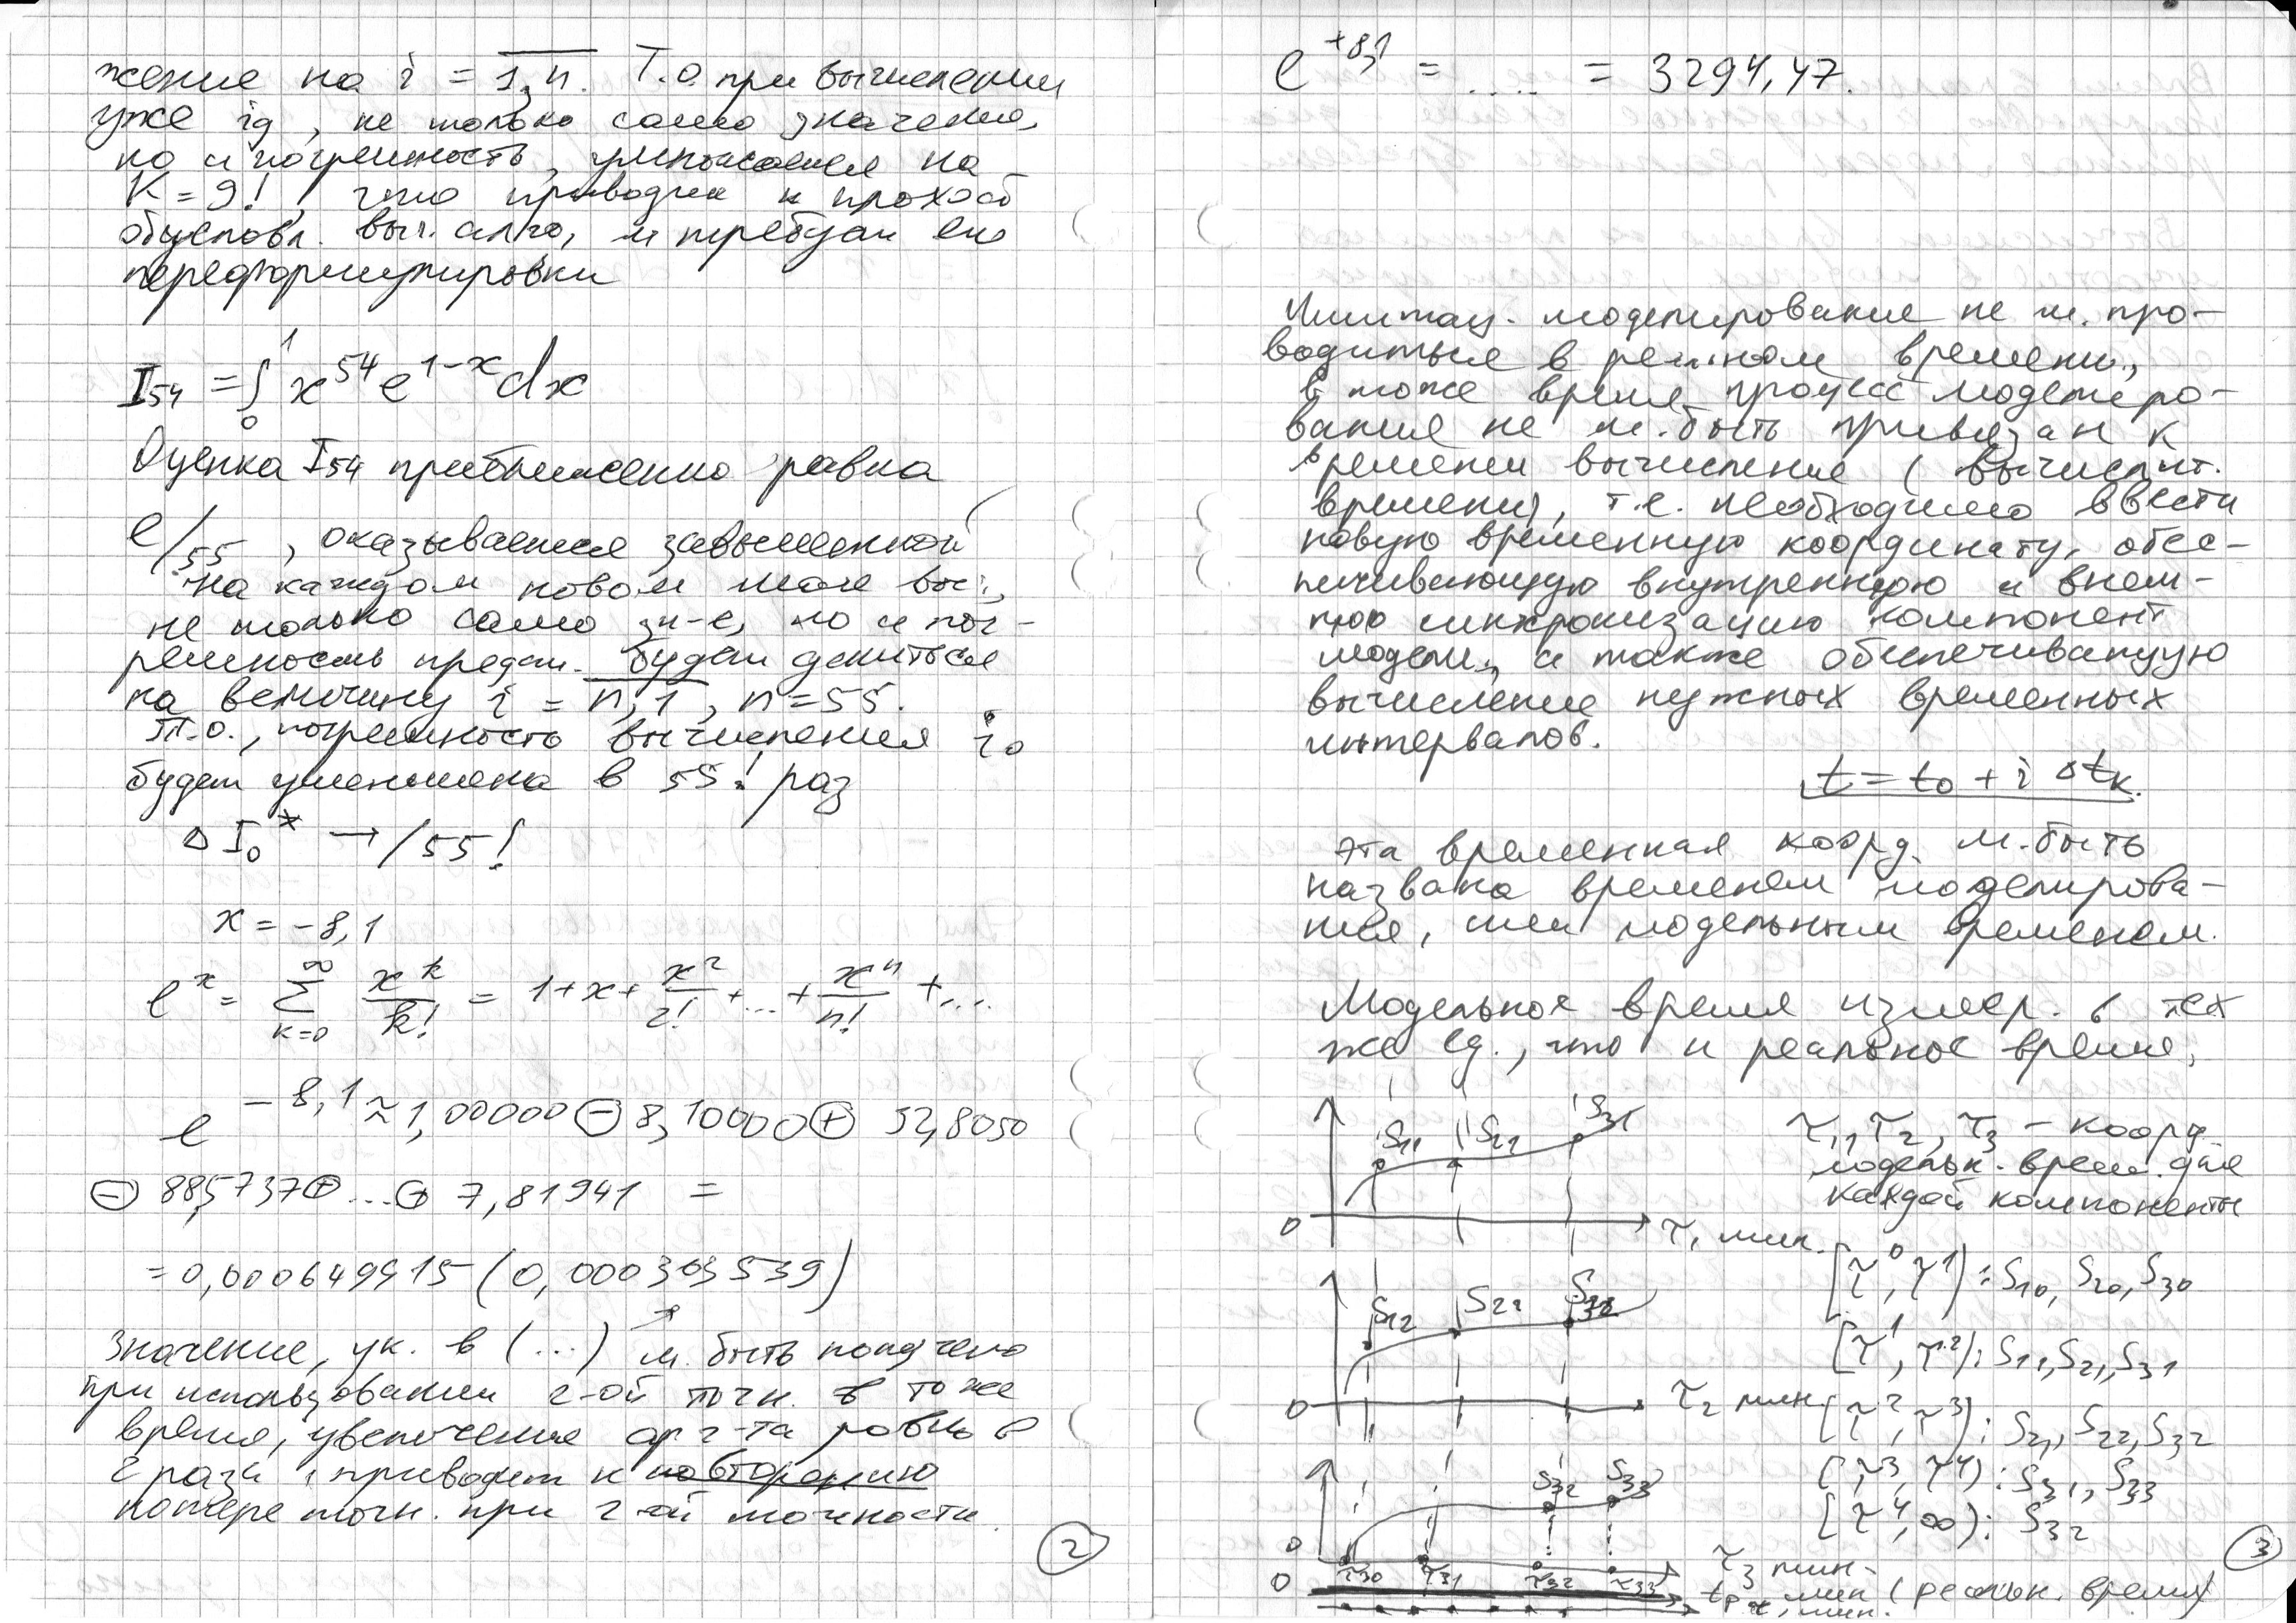 жение на i = 1,n. Т.о при вычислении
уже i9, не только само значение,
но и погрешность, умножается на
K = 9!, что приводит к плохой
обусловл. выч. алго, и требует его
переформулировки
I54 = ∫₀¹ x^54 e^(1-x) dx
Оценка I54 приближенно равна
e/55, оказывается завышенной
на каждом новом шаге выч.,
не только само зн-е, но и пог-
решность предст. будет делиться
на величину i = n,1, n=55.
Т.о., погрешность вычисления i0
будет уменьшена в 55! раз
Δ I0* → /55!
x = -8,1
e^x = Σ_{k=0}^∞ x^k/k! = 1+x+x²/2!+...+x^n/n!+...
e^-8,1 ≈ 1,00000 ⊖ 8,10000 ⊕ 32,8050
⊖ 88,5737 ⊕ ... ⊕ 7,81941 =
= 0,000649915 (0,000303539)
Значение, ук. в (...) м. быть получено
при использовании 2-ой точн. в то же
время, увеличение арг-та ровно в
2 раза, приводит к повторению
потере точн. при 2-ой точности.
2
e^+8,1 = .... = 3294,47.
Имитац. моделирование не м. про-
водиться в реальном времени,
в тоже время процесс моделиро-
вания не м. быть привязан к
времени вычисление (вычислит.
времени), т.е. необходимо ввести
новую временную координату, обес-
печивающую внутреннюю и внеш-
нюю синхронизацию компонент
модели, а также обеспечивающую
вычисление нужных временных
интервалов.
t = t0 + i Δtk.
Эта временная коорд. м. быть
названа временем моделирова-
ния, или модельным временем.
Модельное время измер. в тех
же ед., что и реальное время,
S11 S21 S31
τ1, τ2, τ3 - коорд.
модельн. врем. для
каждой компоненты
0 τ1 мин.
[τ^0, τ^1): S10, S20, S30
S12 S22 S32
[τ^1, τ^2): S11, S21, S31
0 τ2 мин.
[τ^2, τ^3): S21, S22, S32
[τ^3, τ^4): S31, S33
S32 S33
[τ^4, ∞): S32
0 τ30 τ31 τ32 τ33 τ3 мин.
0 tр мин (реальн. время)
3